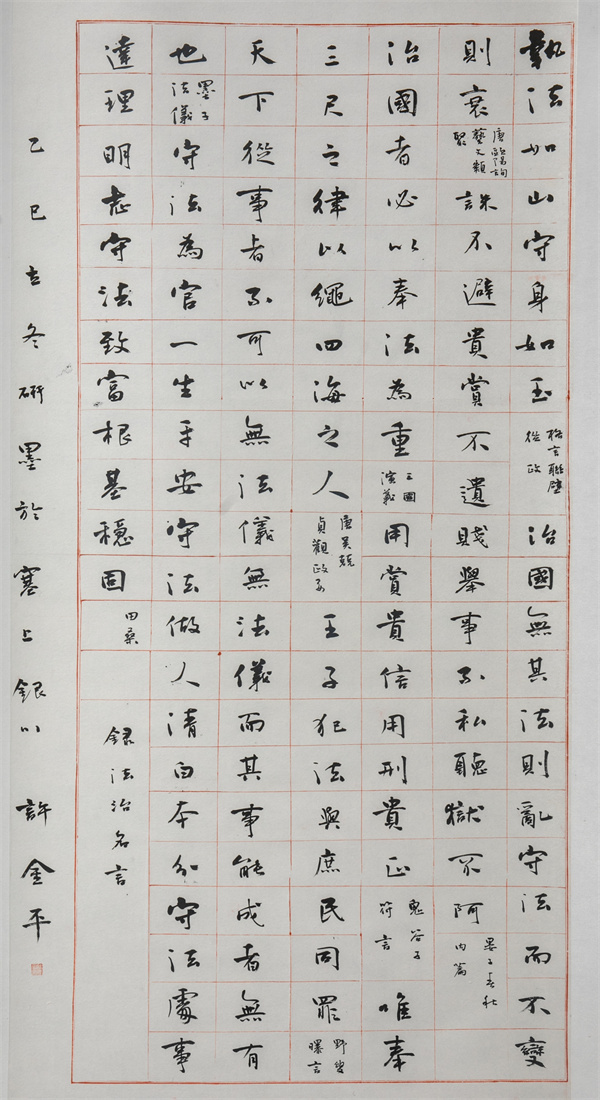 執法如山守身如玉格言聯璧從政治國無其法則亂守法而不變
則衰唐歐陽詢藝文類聚誅不避貴賞不遺賤舉事不私聽獄不阿晏子春秋內篇
治國者必以奉法為重三國演義用賞貴信用刑貴正鬼谷子符言唯奉
三尺之律以繩四海之人唐吳兢貞觀政要王子犯法與庶民同罪野叟曝言
天下從事者不可以無法儀無法儀而其事能成者無有
也墨子法儀守法為官一生平安守法做人清白本分守法處事
達理明志守法致富根基穩固田桑
錄法治名言
乙巳立冬研墨於塞上銀川許金平